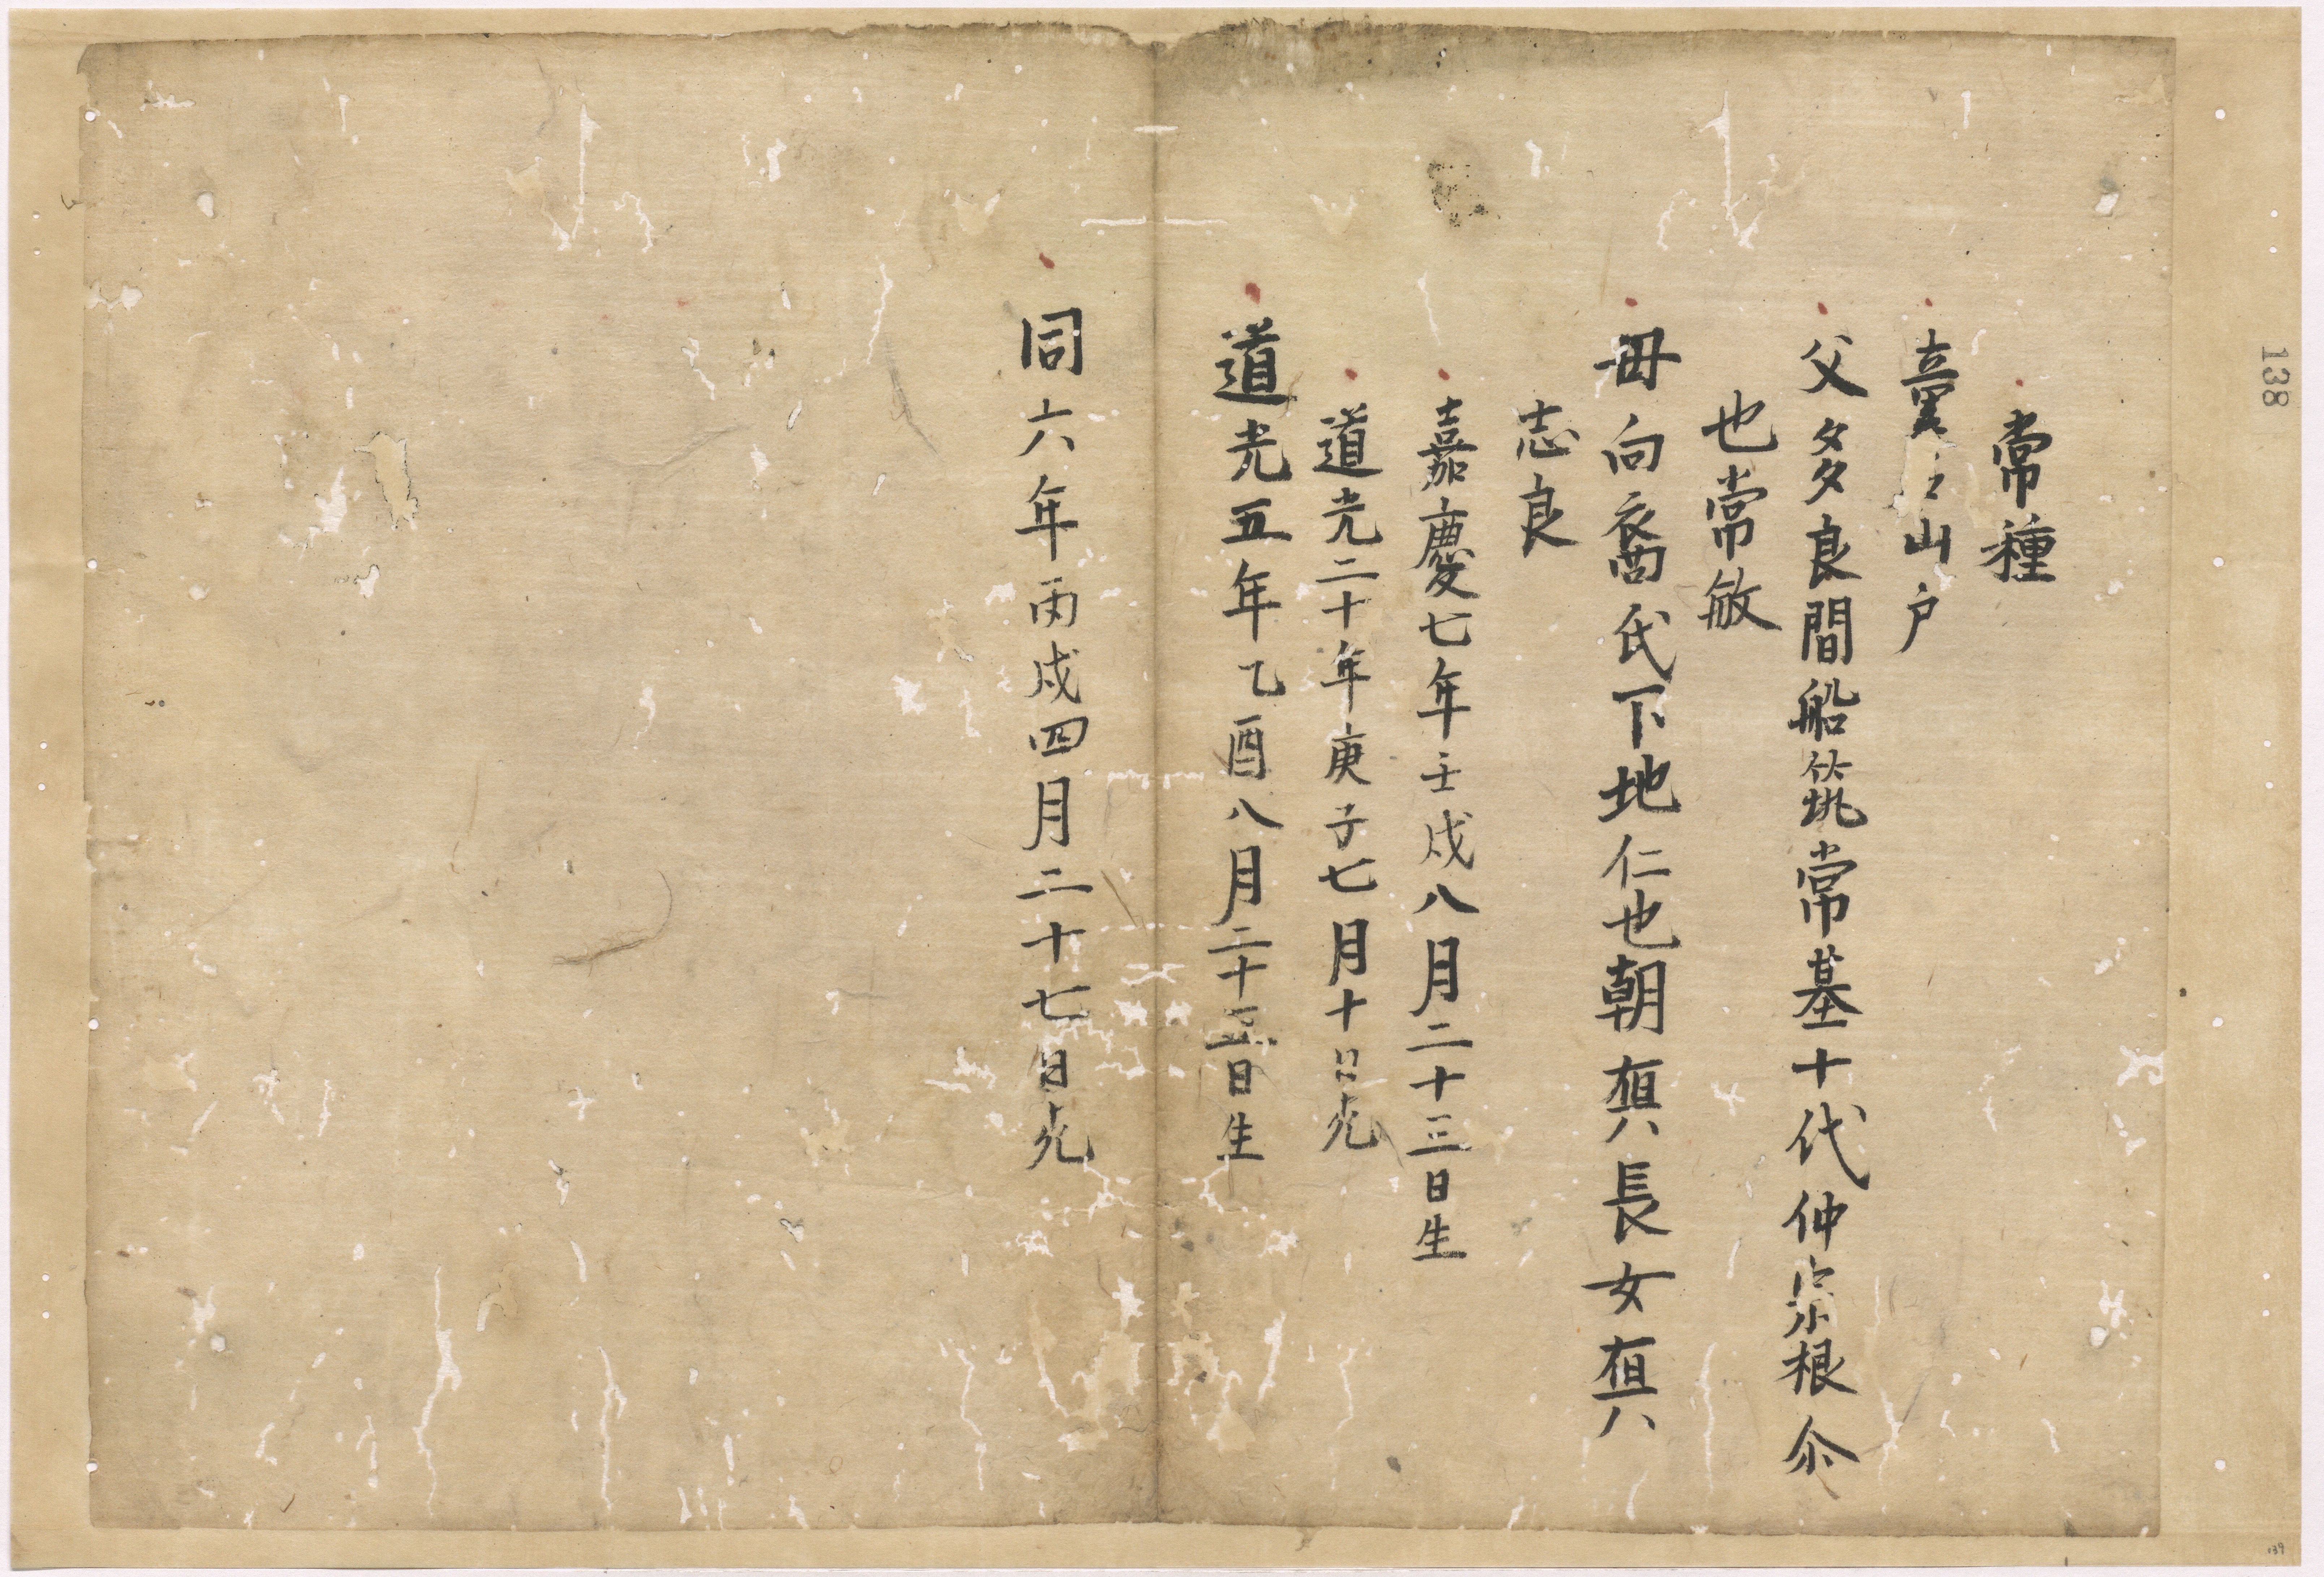 常種
童名山戸
父多良間船筑常基十代仲宗根尒
也常敏
母向裔氏下地仁也朝真長女真
志良
嘉慶七年壬戌八月二十三日生
道光二十年庚子七月十日死
道光五年乙酉八月二十五日生
同六年丙戌四月二十七日死
138
139